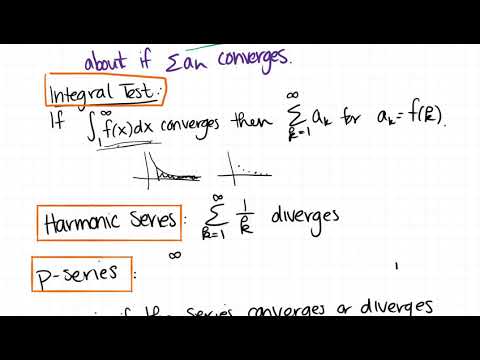 about if Σan converges.
Integral Test:
If ∫₁^∞ f(x)dx converges then ∑_{k=1}^∞ a_k for a_k = f(k).
Harmonic Series: ∑_{k=1}^∞ 1/k diverges
p-series : ∞
if the series converges or diverges